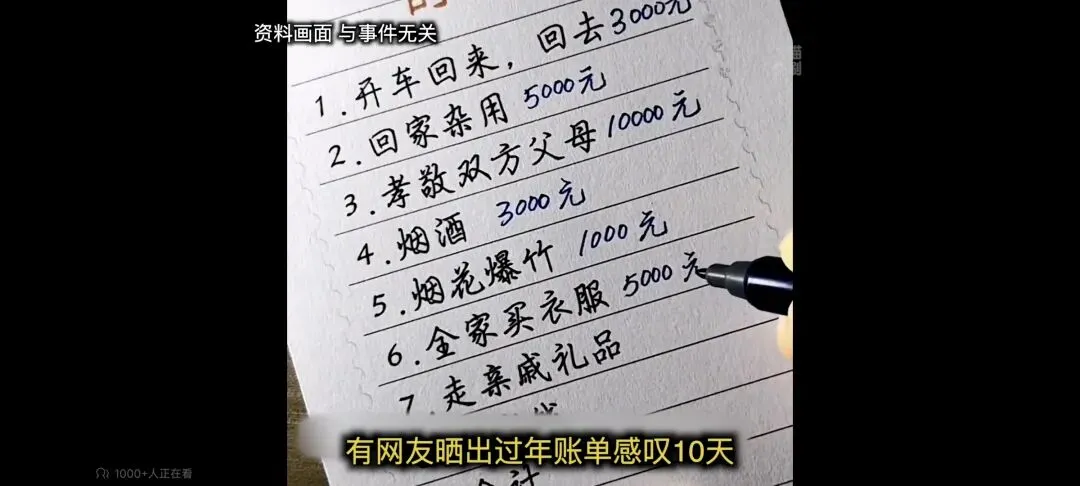 资料画面 与事件无关
1.开车回来，回去3000元
2.回家杂用 5000元
3.孝敬双方父母10000元
4.烟酒 3000元
5.烟花爆竹 1000元
6.全家买衣服 5000元
7.走亲戚礼品
有网友晒出过年账单感叹10天
合计
1000+人正在看